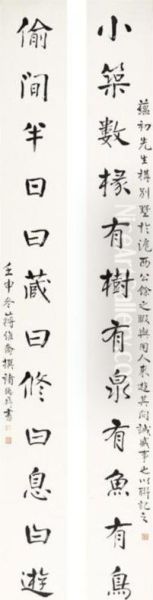 小築數椽有樹有泉有魚有鳥
蘊初先生構別墅於滬西公餘之暇與同人來遊其間誠盛事也以聯記之
偷閒半日曰藏曰修曰息曰遊
壬申冬蔣維喬撰諸